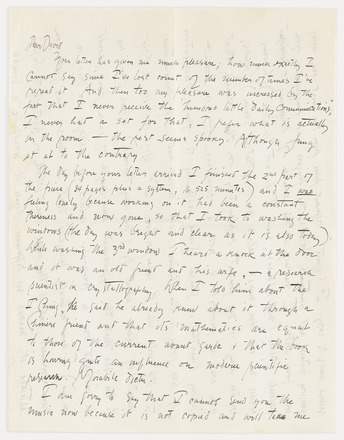 Dear David
Your letter has given me much pleasure; how much exactly I
cannot say since I've lost count of the number of times I've
repeated it. And then too my pleasure was increased by the
fact that I never receive the humorous little Daily Communications;
I never had a set for that, I prefer what is actually
in the room — the rest seems spooky. Although Jung
at to the contrary.
The day before your letter arrived I finished the 2nd part of
the piece (34 pages plus a system, 16.525 minutes) and I was
feeling lonely because working on it has been a constant
and now gone, so that I took to washing the
windows (the day was bright and clear as it is also today).
While washing the 3rd window I heard a knock at the door
and it was an old friend and his wife, — a research
scientist in crystallography. When I told him about the
I Ching, he said he already knew about it through a
Chinese friend and that its mathematics are equal
to those of the current avant garde & that the book
is having quite an influence on modern scientific
research. Mirabile Dictu.
I am sorry to say that I cannot send you the
music now because it is not copied and will take me